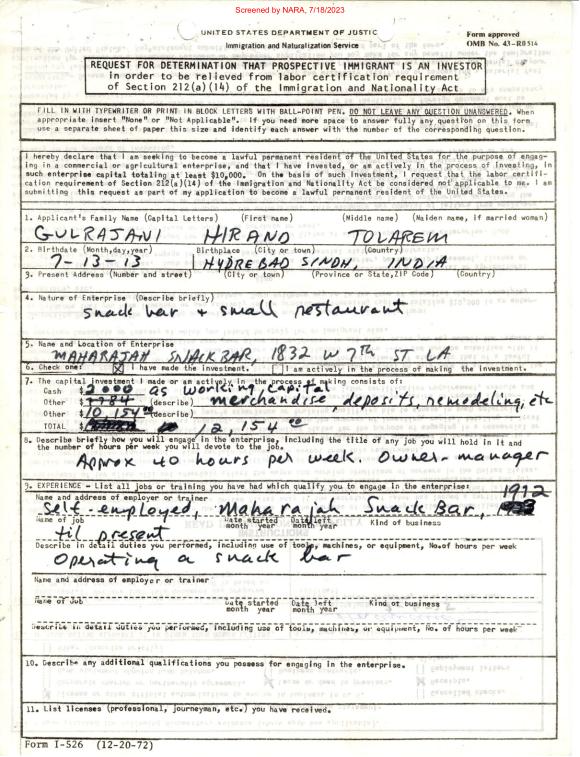 Screened by NARA, 7/18/2023
UNITED STATES DEPARTMENT OF JUSTIC
Immigration and Naturalization Service
Form approved
OMB No. 43-R0514
REQUEST FOR DETERMINATION THAT PROSPECTIVE IMMIGRANT IS AN INVESTOR
in order to be relieved from labor certification requirement
of Section 212(a)(14) of the Immigration and Nationality Act
FILL IN WITH TYPEWRITER OR PRINT IN BLOCK LETTERS WITH BALL-POINT PEN. DO NOT LEAVE ANY QUESTION UNANSWERED. When
appropriate insert "None" or "Not Applicable". If you need more space to answer fully any question on this form,
use a separate sheet of paper this size and identify each answer with the number of the corresponding question.
I hereby declare that I am seeking to become a lawful permanent resident of the United States for the purpose of engag-
ing in a commercial or agricultural enterprise, and that I have invested, or am actively in the process of investing, in
such enterprise capital totaling at least $10,000. On the basis of such investment, I request that the labor certifi-
cation requirement of Section 212(a)(14) of the Immigration and Nationality Act be considered not applicable to me. I am
submitting this request as part of my application to become a lawful permanent resident of the United States.
1. Applicant's Family Name (Capital Letters) (First name) (Middle name) (Maiden name, if married woman)
GULRAJANI HIRANO TOLAREM
2. Birthdate (Month,day,year) Birthplace (City or town) (Country)
7-13-13 HYDREBAD SINDH, INDIA
3. Present Address (Number and street) (City or town) (Province or State,ZIP Code) (Country)
4. Nature of Enterprise (Describe briefly)
snack bar + small restaurant
5. Name and Location of Enterprise
MAHARAJAH SNACK BAR, 1832 W 7th ST LA
6. Check one: X I have made the investment. I am actively in the process of making the investment.
7. The capital investment I made or am actively in the process of making consists of:
Cash $2000 as working capital
Other $7784 (describe) merchandise, deposits, remodeling, etc
Other $10,154 00 (describe)
TOTAL $ 12,154 00
8. Describe briefly how you will engage in the enterprise, including the title of any job you will hold in it and
the number of hours per week you will devote to the job.
Approx 40 hours per week. Owner-manager
9. EXPERIENCE - List all jobs or training you have had which qualify you to engage in the enterprise:
Name and address of employer or trainer 1972
Self-employed, Maharajah Snack Bar,
Name of job Date started Date left Kind of business
month year month year
til present
Describe in detail duties you performed, including use of tools, machines, or equipment, No.of hours per week
Operating a snack bar
Name and address of employer or trainer
Name of Job Date started Date left Kind of business
month year month year
Describe in detail duties you performed, including use of tools, machines, or equipment, No. of hours per week
10. Describe any additional qualifications you possess for engaging in the enterprise.
11. List licenses (professional, journeyman, etc.) you have received.
Form I-526 (12-20-72)